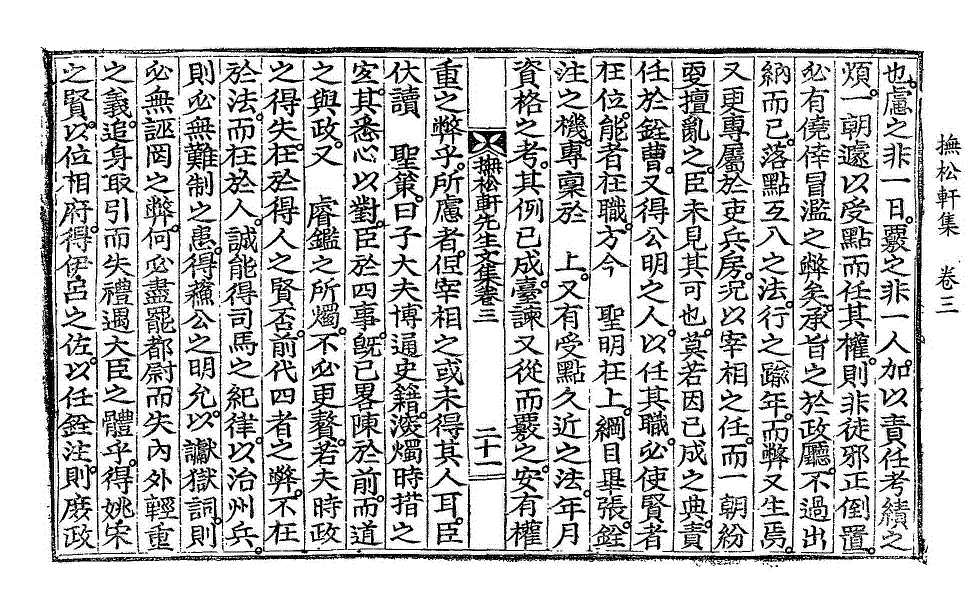 撫松軒集 卷三
也。慮之非一日。覈之非一人。加以責任考績之
煩。一朝遽以受點而任其權。則非徒邪正倒置。
必有僥倖冒濫之弊矣。承旨之於政廳。不過出
納而已。落點互入之法。行之踰年。而弊又生焉。
又更專屬於吏兵房。况以宰相之任。而一朝紛
更擅亂之。臣未見其可也。莫若因已成之典。責
任於銓曹。又得公明之人。以任其職。必使賢者
在位。能者在職。方今 聖明在上。綱目畢張。銓
注之機。專稟於 上。又有受點久近之法。年月
資格之考。其例已成。臺諫又從而覈之。安有權
撫松軒先生文集卷三 二十一
重之弊乎。所慮者。但宰相之或未得其人耳。臣
伏讀 聖策。曰子大夫博通史籍。淡燭時措之
宜。其悉心以對。臣於四事。旣已畧陳於前。而道
之與政。又 睿鑑之所燭。不必更贅。若夫時政
之得失。在於得人之賢否。前代四者之弊。不在
於法。而在於人。誠能得司馬之紀律。以治州兵。
則必無難制之患。得蘇公之明允。以讞獄詞。則
必無誣罔之弊。何必盡罷都尉而失內外輕重
之義。追身取引而失禮遇大臣之體乎。得姚宋
之賢。以位相府。得伊呂之佐。以任銓注。則庶政